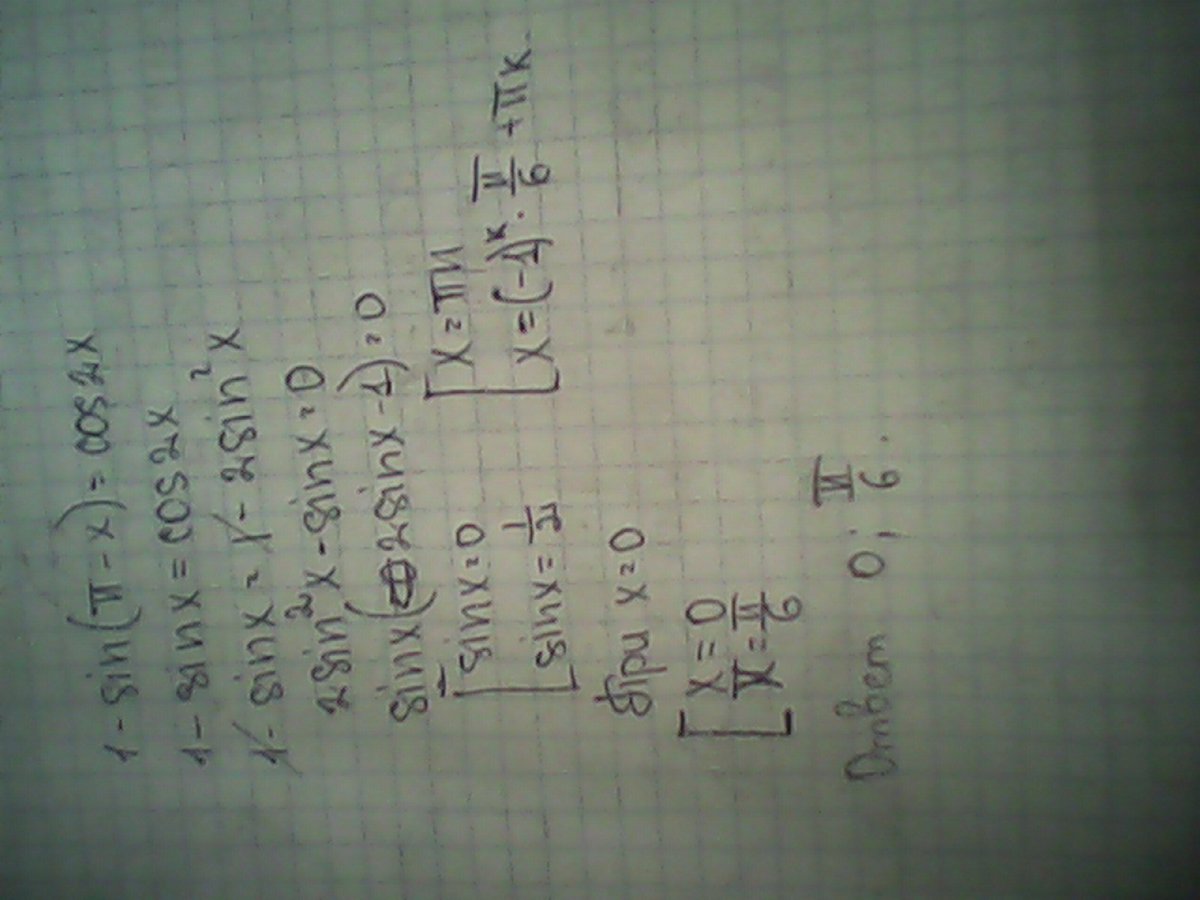 1 - sin(π - x) = cos2x
1 - sinx = cos2x
1 - sinx = 1 - 2sin²x
2sin²x - sinx = 0
sinx(2sinx - 1) = 0
[ sinx = 0 [ x = πn
[ sinx = 1/2 [ x = (-1)ᵏ · π/6 + πк.
При x = 0
[ x = 0
[ x = π/6
Ответ 0; π/6.